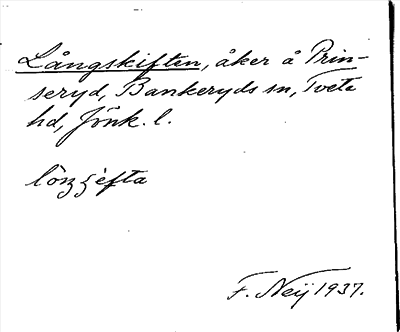 Långskiften, åker å Prin-
seryd, Bankeryds sn, Tveta
hd, Jönk. l.
F. Neij 1937.